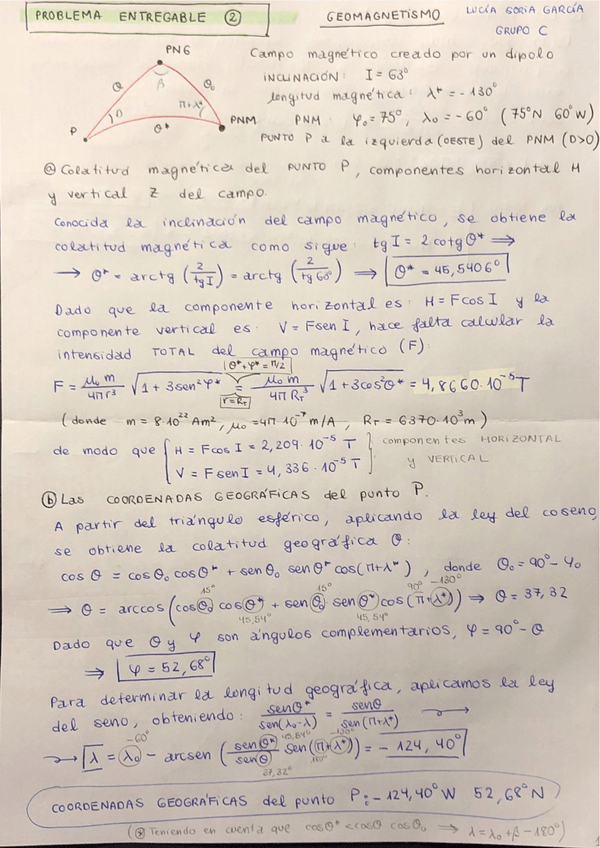 PROBLEMA ENTREGABLE ②
GEOMAGNETISMO
LUCÍA SORIA GARCÍA
GRUPO C
PNG
θ β θ₀
D π+λ*
P θ* PNM
Campo magnético creado por un dipolo
INCLINACIÓN: I = 63°
longitud magnética: λ* = -130°
PNM: φ₀ = 75°, λ₀ = -60° (75°N 60°W)
PUNTO P a la izquierda (OESTE) del PNM (D>0)
ⓐ Colatitud magnética del PUNTO P, componentes horizontal H
y vertical Z del campo.
Conocida la inclinación del campo magnético, se obtiene la
colatitud magnética como sigue: tg I = 2 cotg θ* ⟹
⟶ θ* = arctg (2/tg I) = arctg (2/tg 63°) ⟹ θ* = 45,5406°
Dado que la componente horizontal es: H = F cos I y la
componente vertical es: V = F sen I, hace falta calcular la
intensidad TOTAL del campo magnético (F):
θ* + φ* = π/2
F = μ₀ m / 4π r³ √(1 + 3 sen² φ*) = μ₀ m / 4π R_T³ √(1 + 3 cos² θ*) = 4,8660·10⁻⁵ T
r = R_T
(donde m = 8·10²² Am², μ₀ = 4π 10⁻⁷ m/A, R_T = 6370·10³ m)
de modo que { H = F cos I = 2,209·10⁻⁵ T
V = F sen I = 4,336·10⁻⁵ T } componentes HORIZONTAL
y VERTICAL
ⓑ Las COORDENADAS GEOGRÁFICAS del punto P.
A partir del triángulo esférico, aplicando la ley del coseno,
se obtiene la colatitud geográfica θ:
cos θ = cos θ₀ cos θ* + sen θ₀ sen θ* cos (π+λ*), donde θ₀ = 90° - φ₀
15° 15° 90° -130°
⟹ θ = arccos (cos θ₀ cos θ* + sen θ₀ sen θ* cos (π+λ*)) ⟹ θ = 37,32
45,54° 45,54°
Dado que θ y φ son ángulos complementarios, φ = 90° - θ
⟹ φ = 52,68°
Para determinar la longitud geográfica, aplicamos la ley
del seno, obteniendo: sen θ* / sen (λ₀-λ) = sen θ / sen (π+λ*) ⟶
-60° 45,54° -130°
⟶ λ = λ₀ - arcsen (sen θ* / sen θ sen (π+λ*)) = -124,40°
37,32° 180°
COORDENADAS GEOGRÁFICAS del punto P: -124,40° W 52,68° N
(⊛ Teniendo en cuenta que cos θ* < cos θ cos θ₀ ⟶ λ = λ₀ + β - 180°)